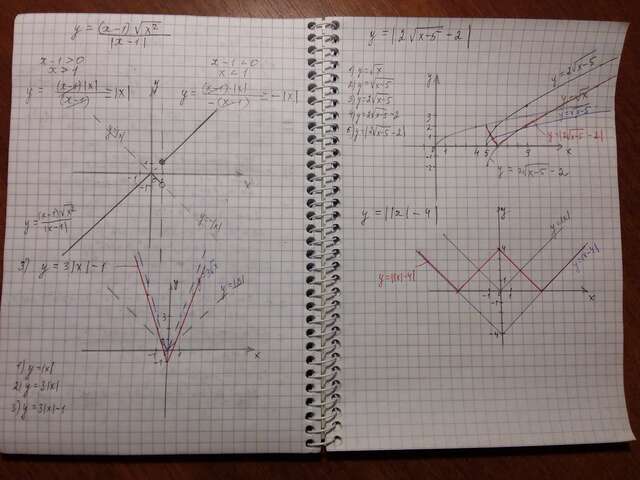 y = (x-1)√x² / |x-1|
x-1>0
x>1
x-1<0
x<1
y = (x-1)·|x| / (x-1) = |x|
y = (x-1)·|x| / -(x-1) = -|x|
y
y=|x|
-1
1
x
y=-|x|
y = (x-1)√x² / |x-1|
3) y = 3|x|-1
y
y=|x|
3
1
-1
x
1) y=|x|
2) y=3|x|
3) y=3|x|-1
y = |2√x-5 - 2|
1) y=√x
2) y=√x-5
3) y=2√x-5
4) y=2√x-5-2
5) y=|2√x-5-2|
y
y=2√x-5
y=√x
y=√x-5
y=|2√x-5-2|
3
2
1
-1
-2
0
1
5
6
9
x
y=2√x-5-2
y = ||x|-4|
y
y=|x|
y=||x|-4|
y=|x|-4
4
1
-1
0
1
-4
x